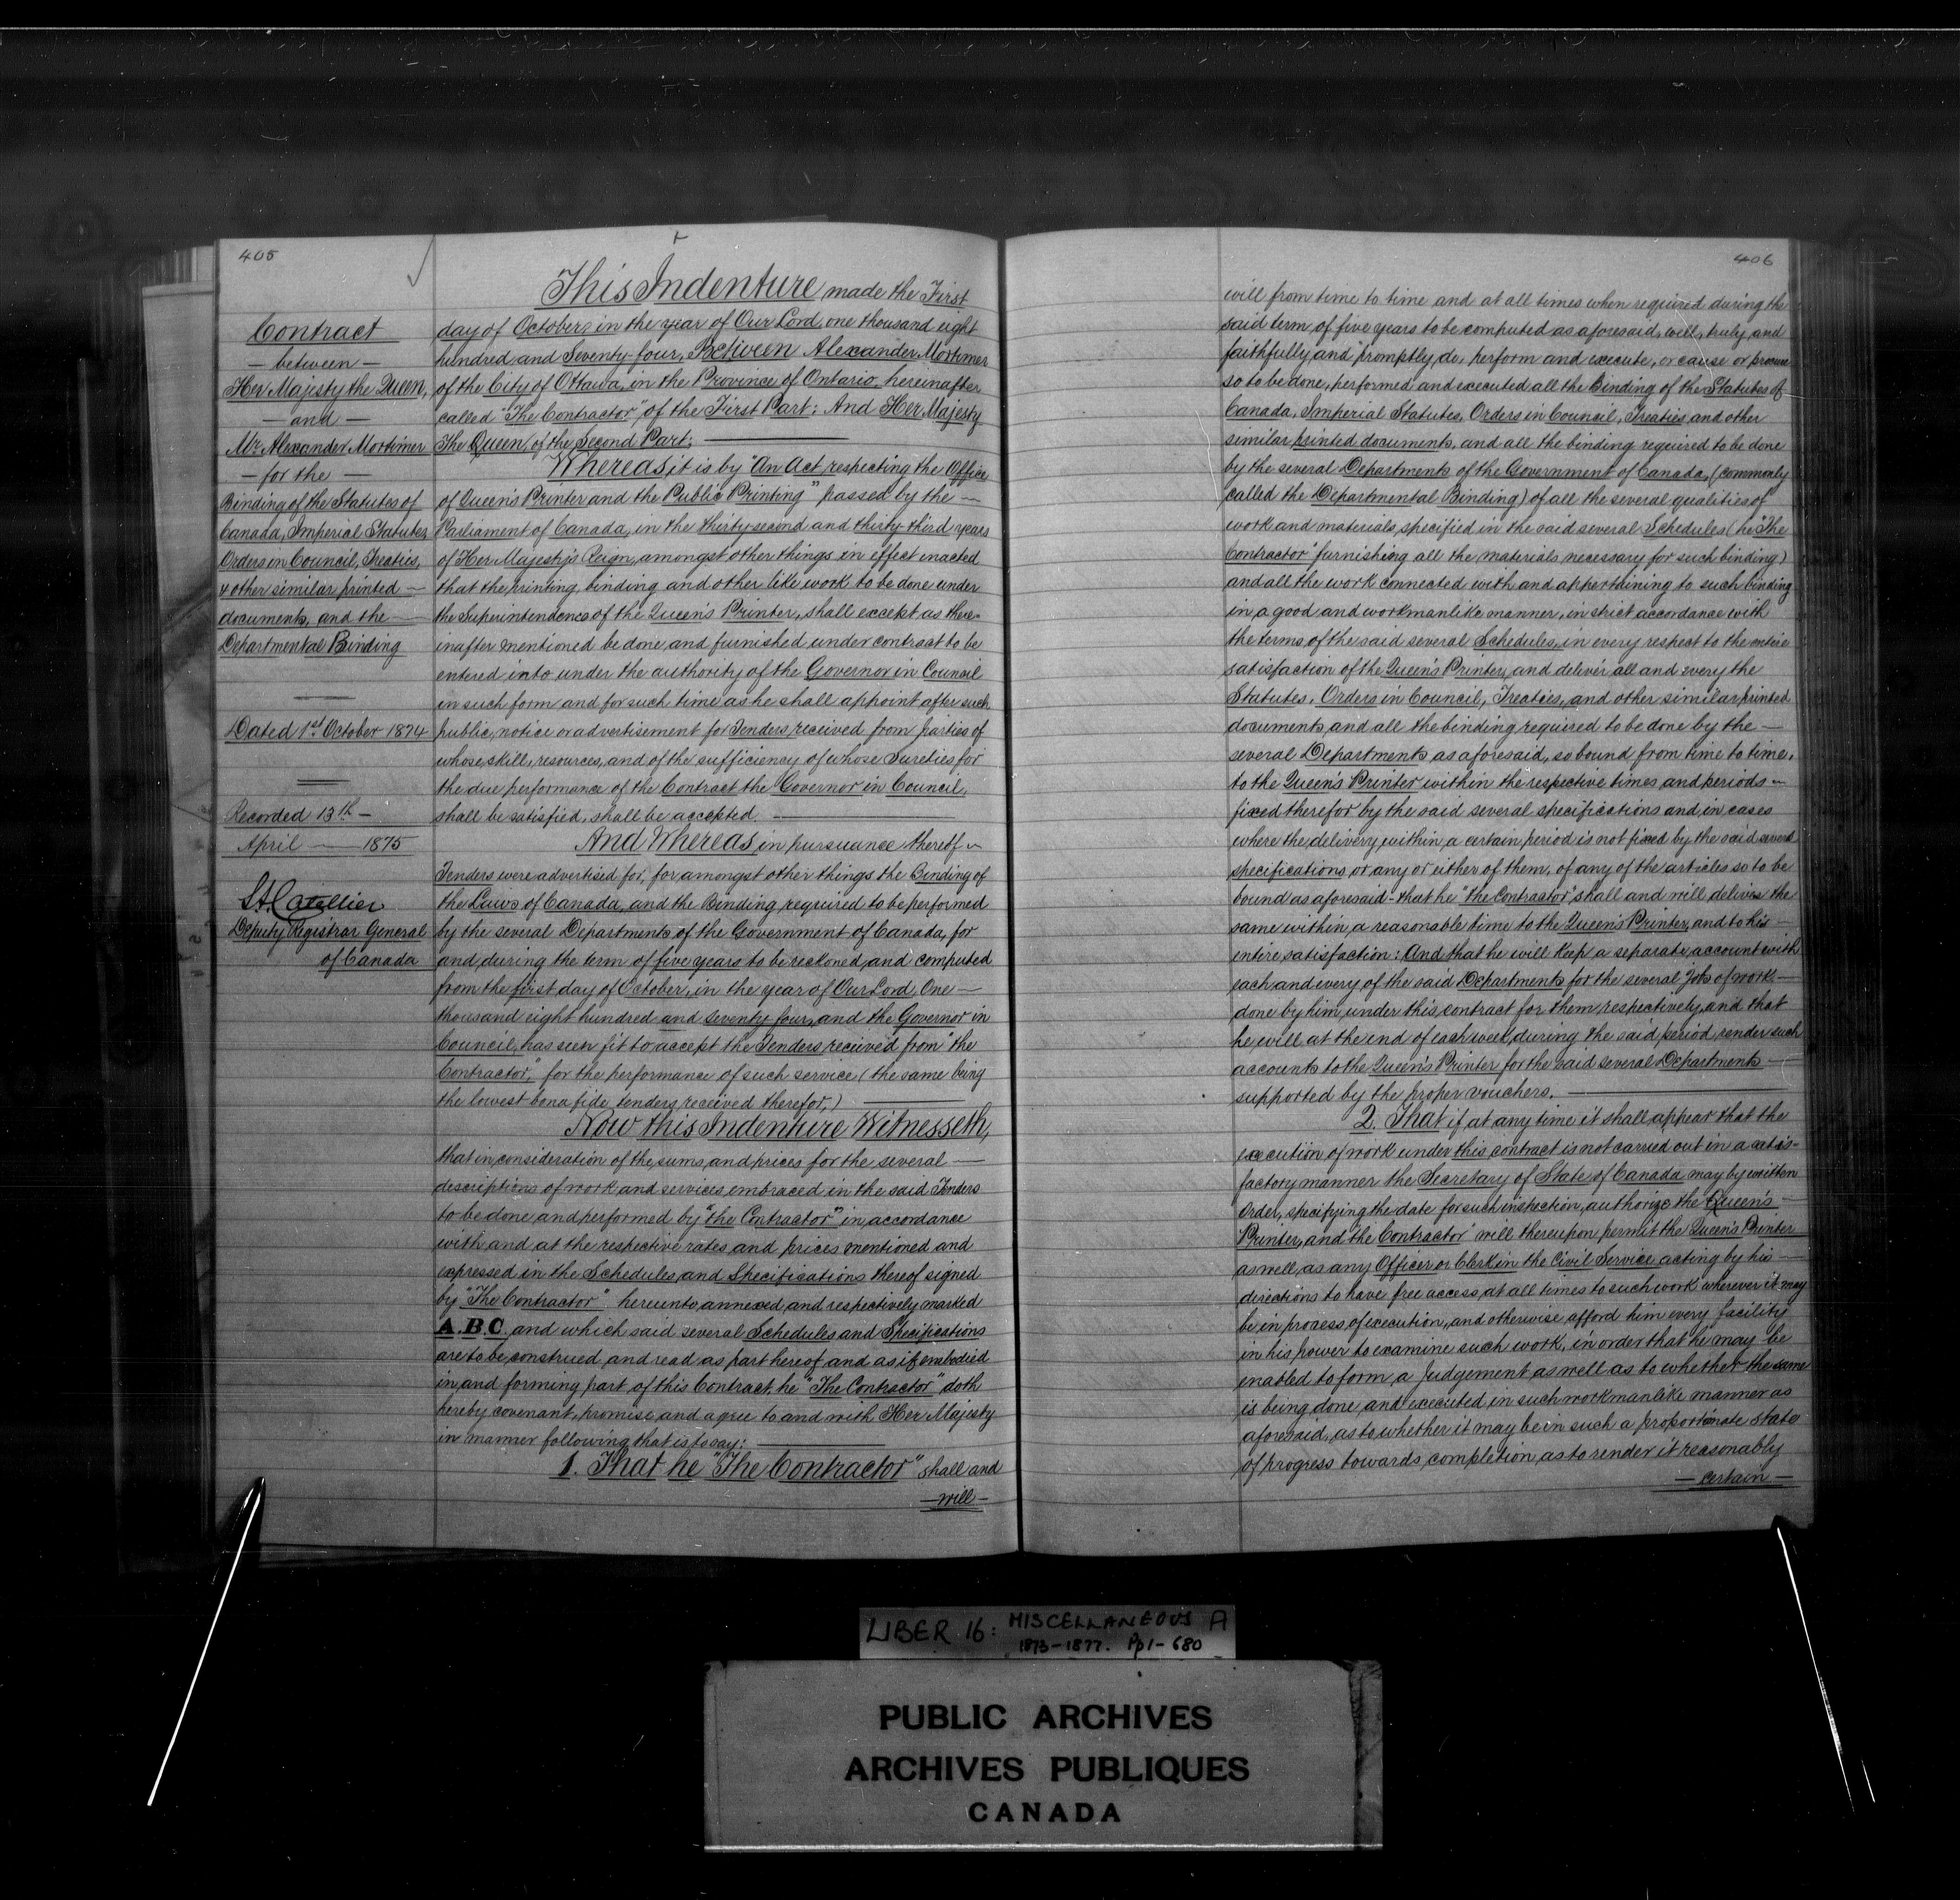 405
Contract
— between —
Her Majesty the Queen,
— and —
Mr. Alexander Mortimer
— for the —
Binding of the Statutes of
Canada, Imperial Statutes,
Orders in Council, Treaties,
& other similar printed —
documents, and the —
Departmental Binding
Dated 1st October 1874
Recorded 13th —
April — 1875
Deputy Registrar General
of Canada
This Indenture made the First
day of October, in the year of Our Lord, one thousand eight
hundred and Seventy-four, Between Alexander Mortimer
of the City of Ottawa, in the Province of Ontario, hereinafter
called "The Contractor", of the First Part: And Her Majesty
The Queen, of the Second Part: —
Whereas, it is by "An Act respecting the Office
of Queen's Printer and the Public Printing" passed by the —
Parliament of Canada, in the thirty-second and thirty-third years
of Her Majesty's Reign, amongst other things in effect enacted
that the printing, binding and other like work to be done under
the Superintendence of the Queen's Printer, shall except as there-
inafter mentioned be done and furnished under contract to be
entered into under the authority of the Governor in Council
in such form and for such time as he shall appoint after such
public notice or advertisement for Tenders received from parties of
whose skill, resources, and of the sufficiency of whose Sureties for
the due performance of the Contract the Governor in Council,
shall be satisfied, shall be accepted. —
And Whereas, in pursuance thereof
Tenders were advertised for, for amongst other things the Binding of
the Laws of Canada, and the Binding required to be performed
by the several Departments of the Government of Canada, for
and during the term of five years to be reckoned and computed
from the first day of October, in the year of Our Lord, One —
thousand eight hundred and seventy four, and the Governor in
Council, has seen fit to accept the Tenders received from "the
Contractor," for the performance of such service (the same being
the lowest bona fide tenders received therefor,) —
Now this Indenture Witnesseth,
that in consideration of the sums and prices for the several —
descriptions of work and services embraced in the said Tenders
to be done and performed by "the Contractor" in accordance
with and at the respective rates and prices mentioned and
expressed in the Schedules and Specifications thereof signed
by "The Contractor" hereunto annexed and respectively marked
A.B.C. and which said several Schedules and Specifications
are to be construed and read as part hereof and as if embodied
in and forming part of this Contract, he "The Contractor" doth
hereby covenant, promise and agree to and with Her Majesty
in manner following that is to say: —
1. That he "The Contractor" shall and
— will —
406
will from time to time and at all times when required during the
said term of five years to be computed as aforesaid, well, truly and
faithfully and promptly do, perform and execute, or cause or procure
so to be done, performed and executed all the Binding of the Statutes of
Canada, Imperial Statutes, Orders in Council, Treaties and other
similar printed documents, and all the binding required to be done
by the several Departments of the Government of Canada, (commonly
called the Departmental Binding) of all the several qualities of
work and materials specified in the said several Schedules (he "The
Contractor" furnishing all the materials necessary for such binding)
and all the work connected with and appertaining to such binding
in a good and workmanlike manner, in strict accordance with
the terms of the said several Schedules, in every respect to the entire
satisfaction of the Queen's Printer, and deliver all and every the
Statutes, Orders in Council, Treaties, and other similar printed
documents, and all the binding required to be done by the —
several Departments as aforesaid, so bound from time to time,
to the Queen's Printer within the respective times and periods —
fixed therefor by the said several specifications and in cases
where the delivery within a certain period is not fixed by the said several
specifications or any or either of them, of any of the articles so to be
bound as aforesaid - that he "the Contractor" shall and will deliver the
same within a reasonable time to the Queen's Printer, and to his —
entire satisfaction: And that he will keep a separate account with
each and every of the said Departments for the several jobs of work —
done by him under this contract for them respectively, and that
he will at the end of each week, during the said period, render such
accounts to the Queen's Printer for the said several Departments —
supported by the proper vouchers. —
2. That if at any time it shall appear that the
execution of work under this contract is not carried out in a satis-
factory manner the Secretary of State of Canada may by written
order, specifying the date for such inspection, authorize the Queen's —
Printer, and "the Contractor" will thereupon permit the Queen's Printer
as well as any Officer or Clerk in the Civil Service acting by his —
directions to have free access at all times to such work wherever it may
be in process of execution, and otherwise afford him every facility
in his power to examine such work, in order that he may be
enabled to form a Judgement as well as to whether the same
is being done and executed in such workmanlike manner as
aforesaid, as to whether it may be in such a proportionate state
of progress towards completion as to render it reasonably
— certain —
LIBER 16: MISCELLANEOUS A
1873-1877. Pp 1-680
PUBLIC ARCHIVES
ARCHIVES PUBLIQUES
CANADA